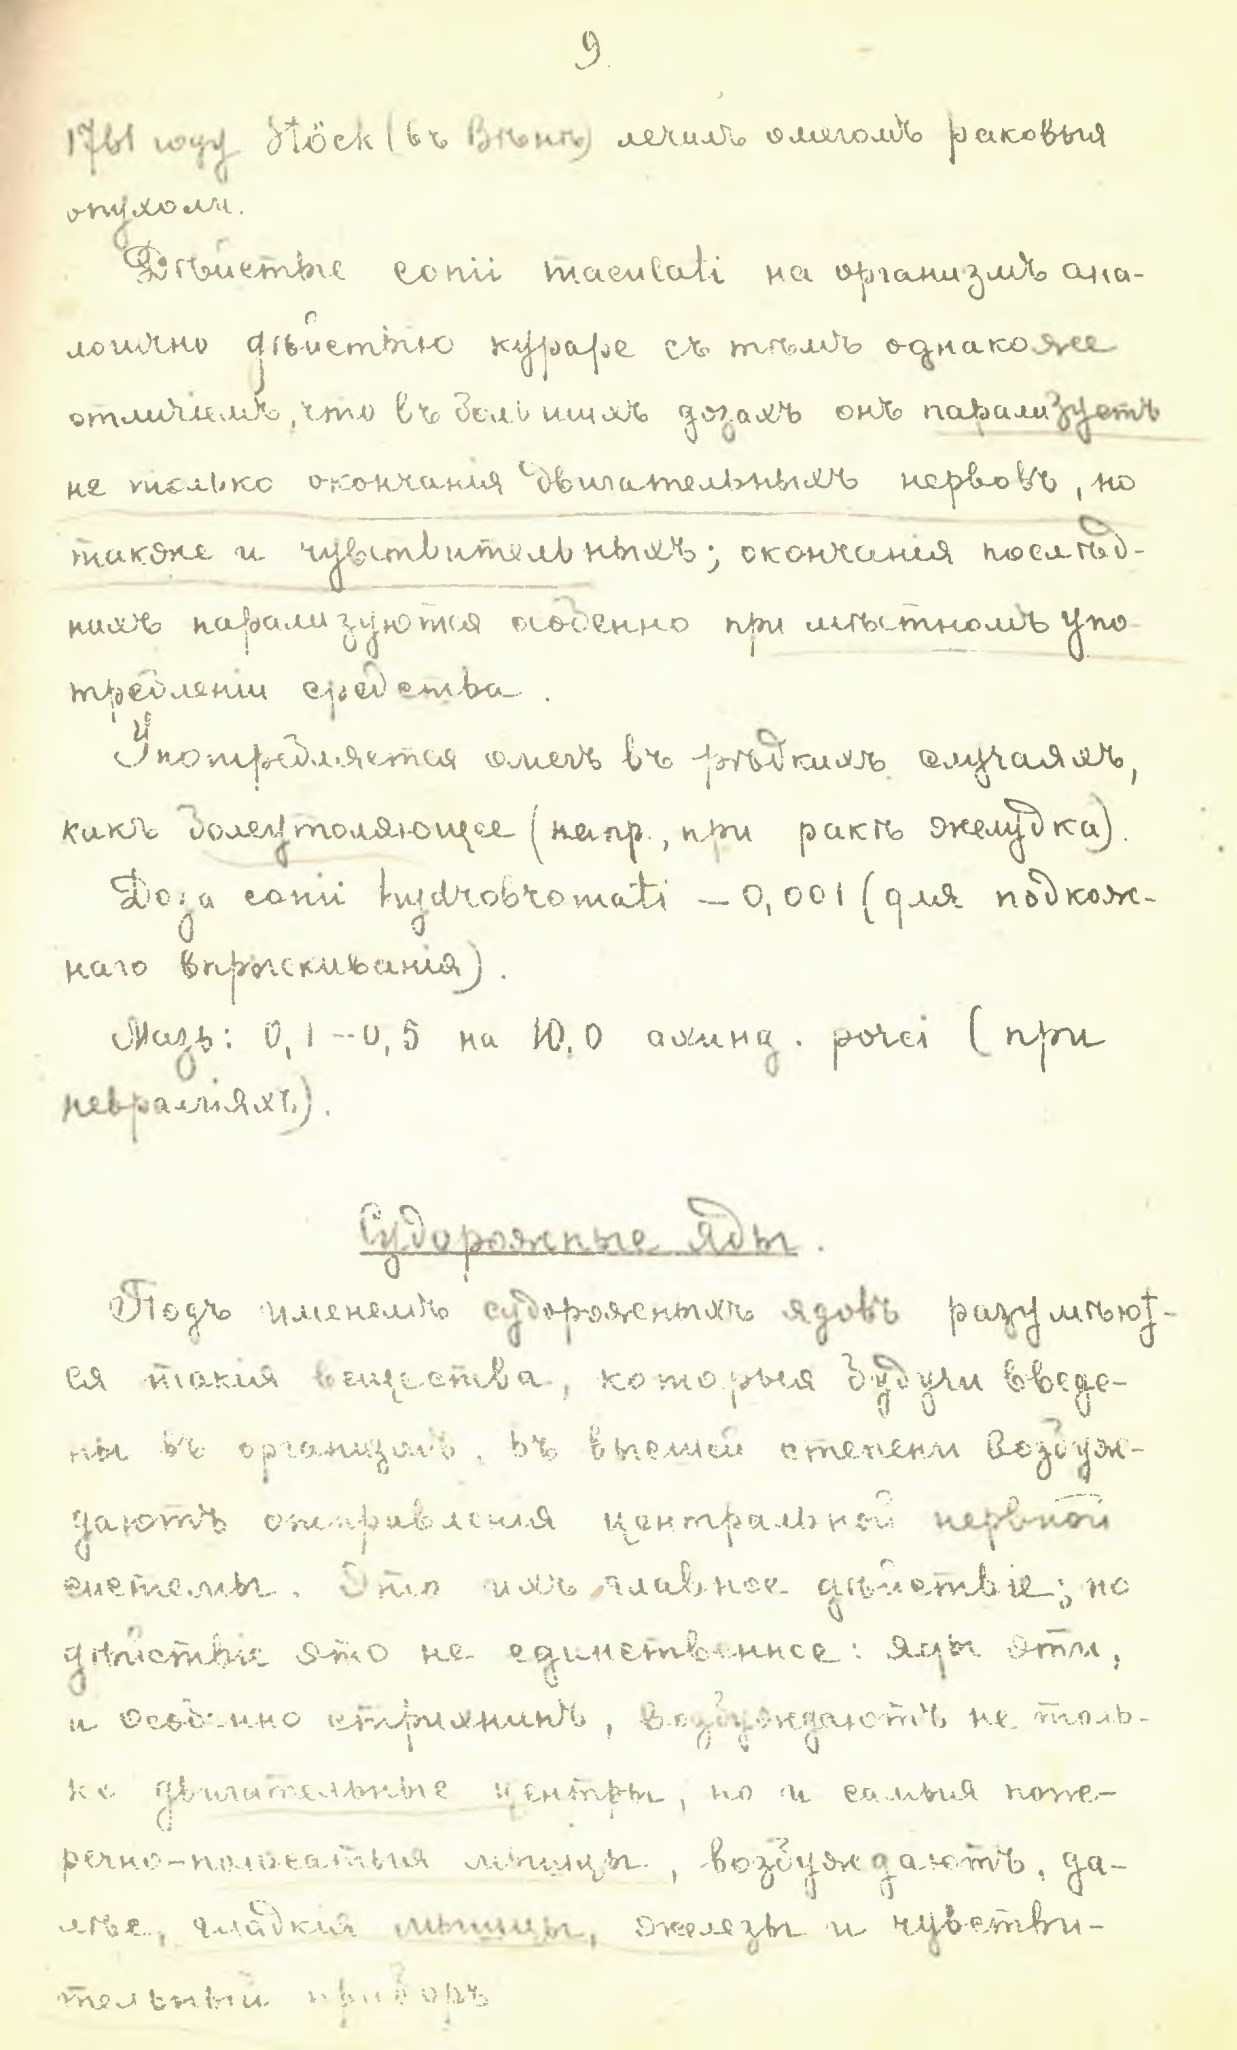 9.
1761 году Stöck (въ Вѣнѣ) лечилъ омегомъ раковыя
опухоли.
Дѣйствіе conii maculati на организмъ ана-
логично дѣйствію кураре съ тѣмъ однакоже
отличіемъ, что въ большихъ дозахъ онъ парализуетъ
не только окончанія двигательныхъ нервовъ, но
также и чувствительныхъ; окончанія послѣд-
нихъ парализуются особенно при мѣстномъ упо-
требленіи средства.
Употребляется омегъ въ рѣдкихъ случаяхъ,
какъ болеутоляющее (напр., при ракѣ желудка).
Доза conii hydrobromati — 0,001 (для подкож-
наго впрыскиванія).
Мазь: 0,1 — 0,5 на 10,0 axung. porci (при
невралгіяхъ).
Судорожные яды.
Подъ именемъ судорожныхъ ядовъ разумѣют-
ся такія вещества, которыя будучи введе-
ны въ организмъ, въ высшей степени возбуж-
даютъ отправленія центральной нервной
системы. Это ихъ главное дѣйствіе; но
дѣйствіе это не единственное: яды эти,
и особенно стрихнинъ, возбуждаютъ не толь-
ко двигательные центры, но и самыя попе-
речно-полосатыя мышцы, возбуждаютъ, да-
лѣе, гладкія мышцы, железы и чувстви-
тельный приборъ